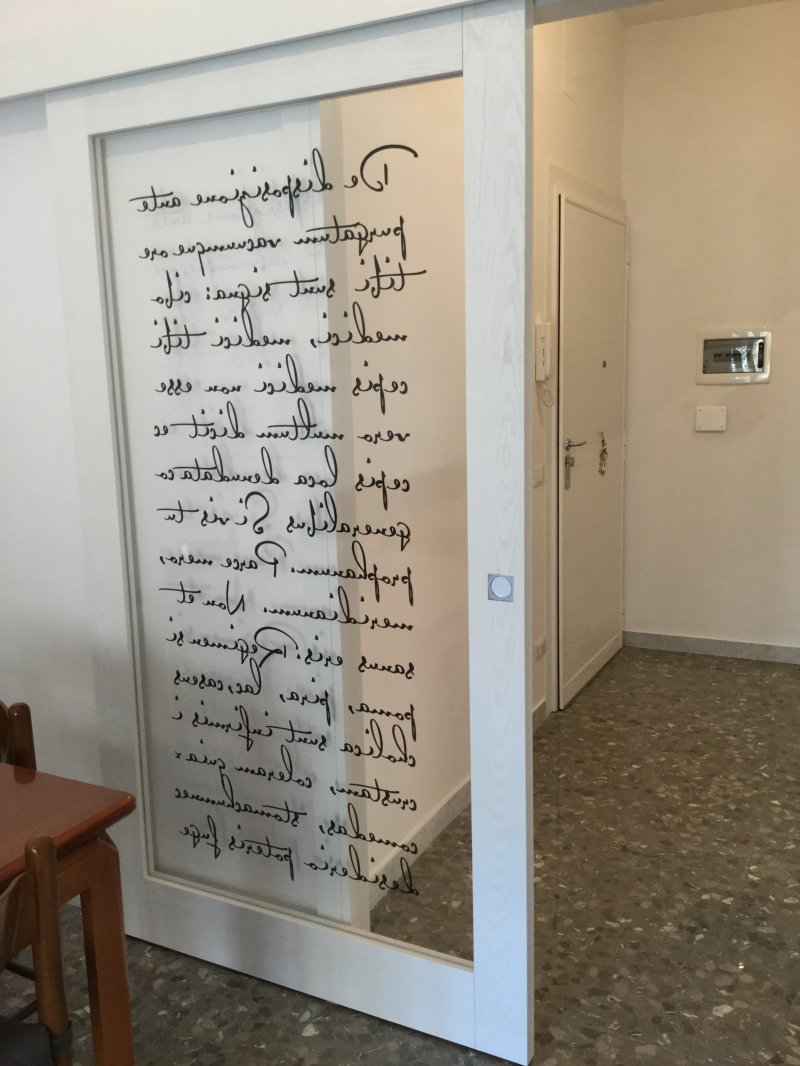 De disposizione ante
purgatum vacuumque ore
tibi sunt signa: cibo
medici, medici tibi
cepis medici non esse
vero multum dicit ec
cepis loca denudata co
generalibus Si vis tu
prophanum. Parce mero,
meridianum. Non et
sanus eris. Regimensi
poma, pira, lac, caseus
cholica sunt infirmis i
crustam, coleram quia
comedas, stomachumnec
desiderio poteris fuge